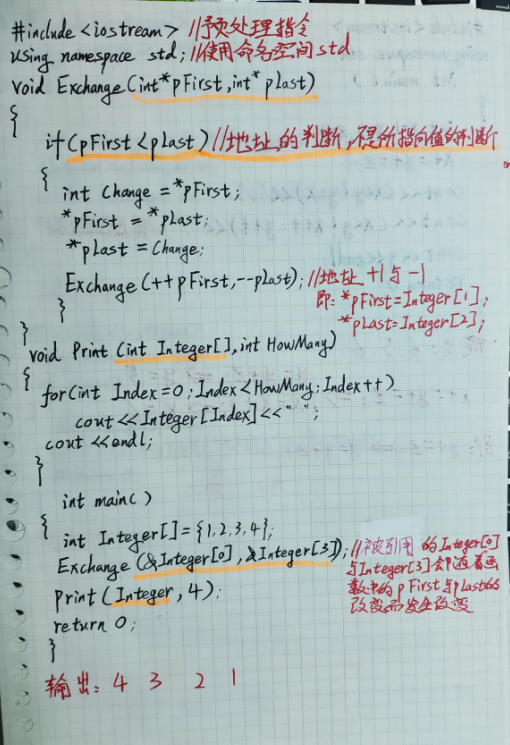 #include <iostream> //预处理指令
using namespace std; //使用命名空间std
void Exchange(int*pFirst,int* plast)
{
if(pFirst<plast) //地址的判断,不是所指向值的判断
{
int Change = *pFirst;
*pFirst = *plast;
*plast = Change;
Exchange(++pFirst,--plast); //地址 +1 与 -1
即: *pFirst=Integer[1];
*plast=Integer[2];
}
}
void Print (int Integer[],int HowMany)
{
for(int Index=0;Index<HowMany;Index++)
cout<<Integer[Index]<<" ";
cout <<endl;
}
int main()
{
int Integer[]={1,2,3,4};
Exchange (&Integer[0],&Integer[3]); //被引用 的Integer[0]
与Integer[3]会随着函
数中的pFirst与plast的
改变而发生改变
print (Integer,4);
return 0;
}
输出: 4 3 2 1